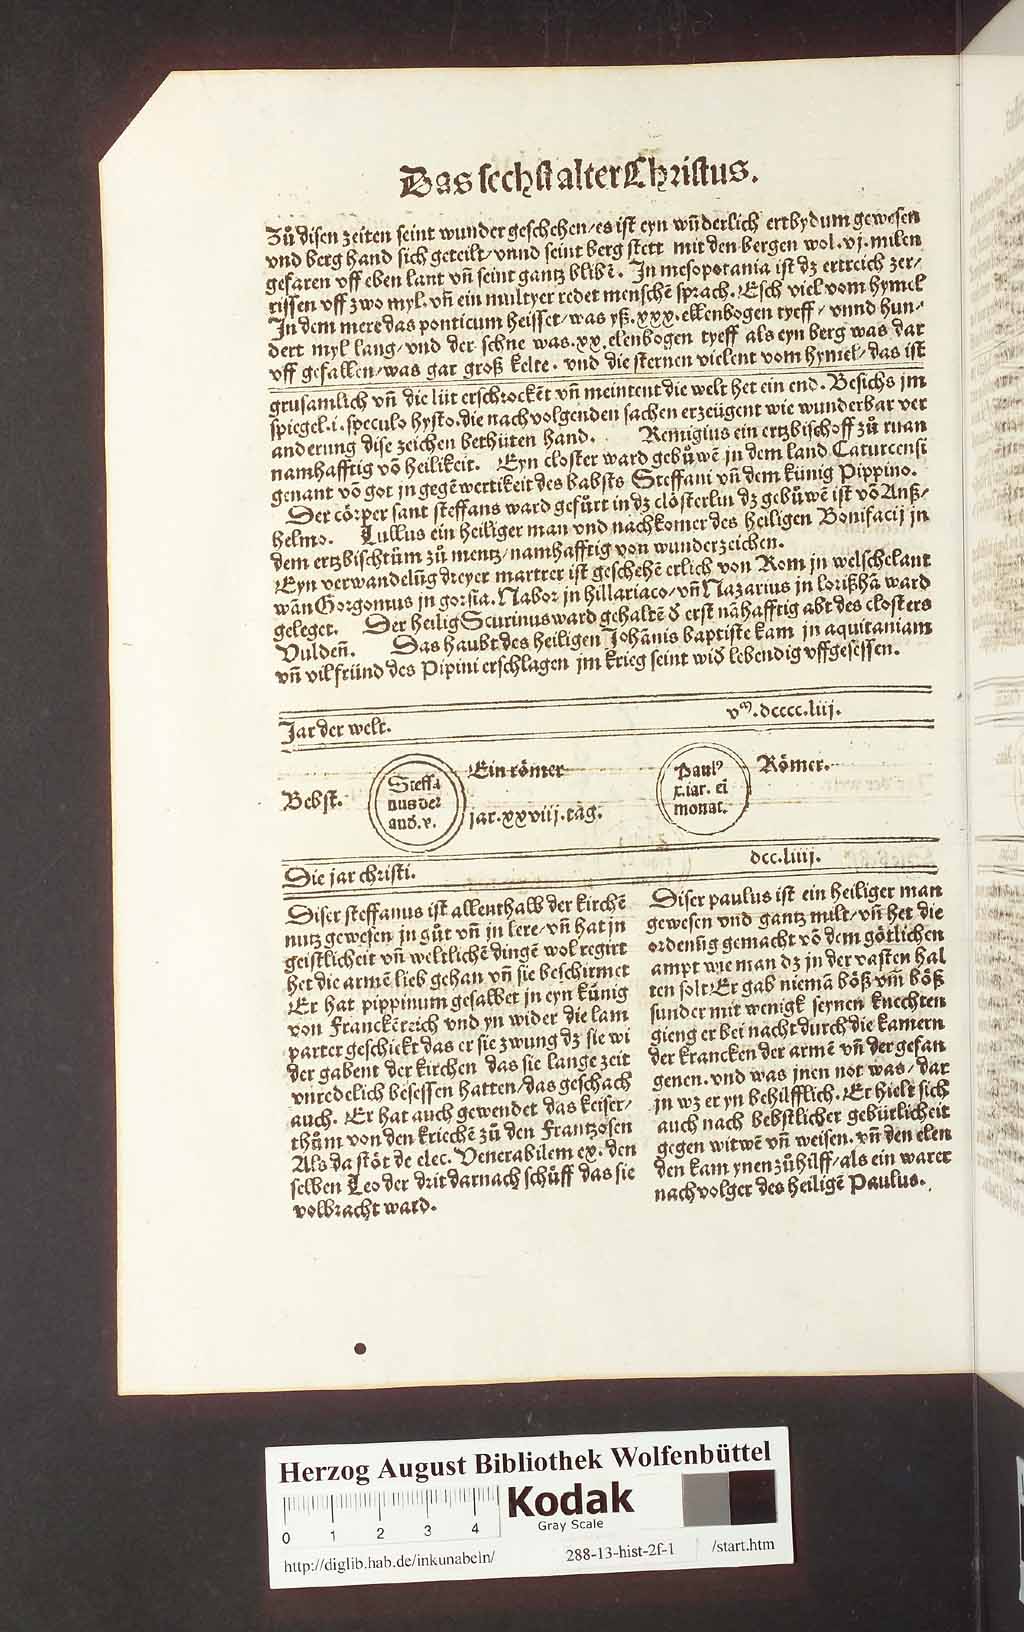 Das sechst alter Christus.
Zů disen zeiten seint wunder geschehen/es ist eyn wūderlich ertbydum gewesen
vnd berg hand sich geteilt/vnnd seint berg stett mit den bergen wol.vj.milen
gefaren vff eben lant vñ seint gantz blibē. In mesopotania ist dz ertreich zer/
rissen vff zwo myl.vñ ein multyer redet menschē sprach. Esch viel vom hymel
In dem mere das ponticum heisset/was yß.xxx.ellenbogen tyeff/vnnd hun/
dert myl lang/vnd der schne was.xx.elenbogen tyeff als eyn berg was dar
vff gefallen/was gar groß kelte. vnd die sternen vielent vom hymel/das ist
grusamlich vñ die lüt erschrockēt vñ meintent die welt het ein end. Besichs jm
spiegel.i.speculo hysto.die nachvolgenden sachen erzeügent wie wunderbar ver
anderung dise zeichen bethüten hand. Remigius ein ertzbischoff zů ruan
namhafftig võ heilikeit. Eyn closter ward gebůwē in dem land Caturcensi
genant võ got jn gegēwertikeit des babsts Steffani vñ dem künig Pippino.
Der cörper sant steffans ward gefürt in dz clösterlin dz gebůwē ist võ Anß/
helmo. Lullus ein heiliger man vnd nachkomer des heiligen Bonifacij jn
dem ertzbischtům zů mentz/namhafftig von wunderzeichen.
Eyn verwandelūg dreyer martrer ist geschehē erlich von Rom jn welschelant
wān Gorgonius jn gorsia. Nabor jn hillariaco/vñ Nazarius jn lorißhā ward
geleget. Der heilig Scurinus ward gehaltē d̄ erst nāhafftig abt des closters
Vulden̄. Das haubt des heiligen Johānis baptiste kam jn aquitaniam
vñ vil fründ des Pipini erschlagen jm krieg seint wid̄ lebendig vffgesessen.
Jar der welt. vᵐ.dcccc.liij.
Bebst.
Steffa
nus der
and̄.v.
Ein römer
jar.xxviij.tag.
Paulꝰ
x.iar. eī
monat.
Römer.
Die jar christi. dcc.liiij.
Diser steffanus ist allenthalb der kirchē
nutz gewesen jn gůt vñ jn lere/vñ hat jn
geistlicheit vñ weltlichē dingē wol regirt
het die armē lieb gehan vñ sie beschirmet
Er hat pippinum gesalbet jn eyn künig
von Franckēreich vnd yn wider die lam
parter geschickt das er sie zwung dz sie wi
der gabent der kirchen das sie lange zeit
vnredelich besessen hatten/das geschach
auch. Er hat auch gewendet das keiser/
thům von den kriechē zů den Frantzosen
Als da stöt de elec. Venerabilem ex. den
selben Leo der drit darnach schůff das sie
volbracht ward.
Diser paulus ist ein heiliger man
gewesen vnd gantz milt/vñ het die
ordenūg gemacht võ dem götlichen
ampt wie man dz jn der vasten hal
ten solt Er gab niemā böß vm̄ böß
sunder mit wenigk seynen knechten
gieng er bei nacht durch die kamern
der krancken der armē vñ der gefan
genen.vnd was jnen not was/dar
jn wz er yn behilfflich. Er hielt sich
auch nach bebstlicher gebürlicheit
gegen witwē vñ weisen.vñ den elen
den kam ynen zů hilff/als ein warer
nachvolger des heiligē Paulus.
Herzog August Bibliothek Wolfenbüttel
0 1 2 3 4
Kodak
Gray Scale
http://diglib.hab.de/inkunabeln/ 288-13-hist-2f-1 /start.htm